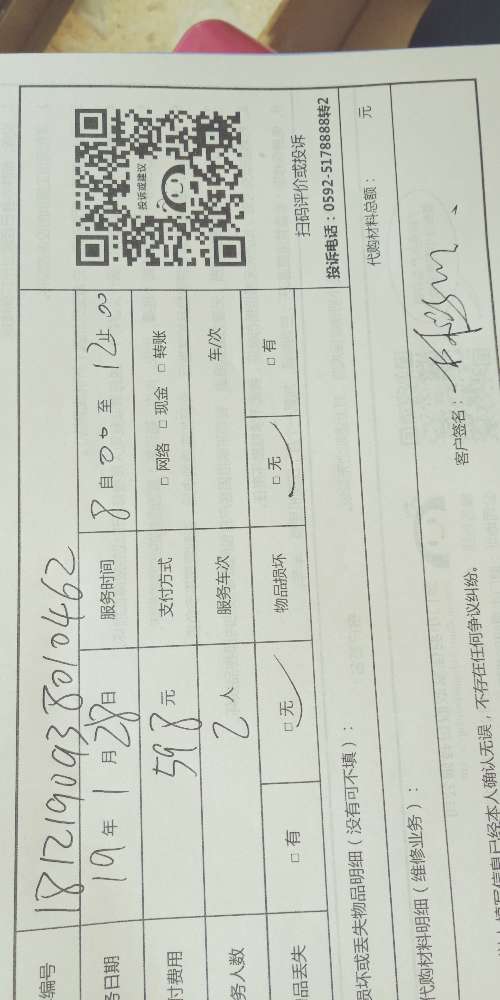 编号 1812190938010462
务日期 19年1月28日 服务时间 8自00至12止00
付费用 598元 支付方式 □ 网络 □ 现金 □ 转账
务人数 2人 服务车次 车/次
品丢失 □ 有 □ 无 物品损坏 □ 无 □ 有
投诉或建议
扫码评价或投诉
投诉电话：0592-5178888转2
损坏或丢失物品明细（没有可不填）：
代购材料总额： 元
代购材料明细（维修业务）：
填写信息已经本人确认无误，不存在任何争议纠纷。
客户签名：